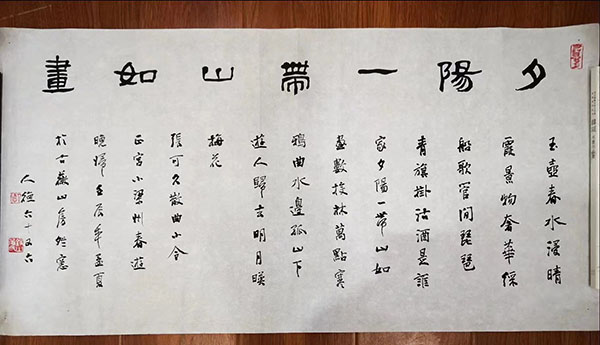 夕陽一帶山如畫
玉壺春水浸晴
霞景物奢華綵
船歌管間琵琶
青旗掛沽酒是誰
家夕陽一帶山如
畫數投林萬點寒
鴉曲水邊孤山下
遊人歸去明月映
梅花
張可久散曲小令
正宮小梁州春遊
晚歸壬辰年孟夏
於古山房窓
人六十又六